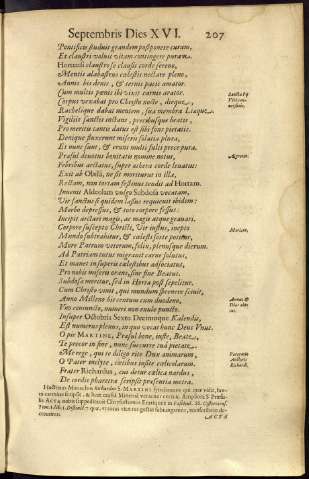 Septembris Dies XVI. 207
Pontificii studuit grandem postponere curam,
Et claustri voluit vitam contingere puram.
Hortensi claustro se clausit corde sereno,
Mentis alabastro cælestis nectare pleno,
Annis bis denis, & ternis pacis amator.
Cum multis panis ibi vixit carnis
Corpus vexabat pro Christo nocte, dieque,
Rachelique dabat mentem, sua membra Liæque.
Vigiliis sanctis instans, precibusque beatis,
Pro meritis tantis datus est sibi fons pietatis.
Denique fluxerunt miseris solatia plura,
Et nunc sunt, & erunt multis fulta
Præsul devotus bonitatis nomine notus,
Febribus arctatus, super æthera corde levatus:
Exit ab Obsila, ne sit moriturus in illa,
Rectam, non tortam festinus tendit ad Hortam.
Inuenit Aldeolam vulgo Subdosa vocatam,
Vir sanctus si quidem lassus requieuit ibidem:
Morbo depressus, & toto corpore fessus:
Incipit arctari magis, ac magis atque grauari.
Corpore suscepto Christi, Vir iustus, inepto
Mundo subtrahitur, & cælesti sorte potitur,
More Patrum veterum, felix, plenusque dierum.
Ad Patriam tutus migrauit carne solutus,
Et manet in superis cælestibus associatus,
Pro nobis miseris orans, sine fine Beatus.
Subdosa moritur, sed in Horta post sepelitur.
Cum Christo viuit, qui mundum spernere sciuit,
Anno Milleno bis centum cum duodeno,
Vno coniuncto, numero non paulo puncto.
Insuper Octobris Sexto Decimoque Kalendis,
Est numerus plenus, in quo vocat hunc Deus Vnus.
O pie MARTINE, Præsul bone, iuste, Beate,
Te precor in fine, nunc succurre tua pietate.
Me rege, qui te diligo rite Dux animarum,
O Pater inclyte, ciuibus insite cælicolarum.
Frater Richardus, cui detur cælica nardus,
De cordis pharetra scripsit præsentia metra.
Hactenus Monachus Richardus S. MARTINI Synchronus qui eius
ACTA
Aegrotat.
Moritur.
Annus &
Dies obitus.
Richardi.